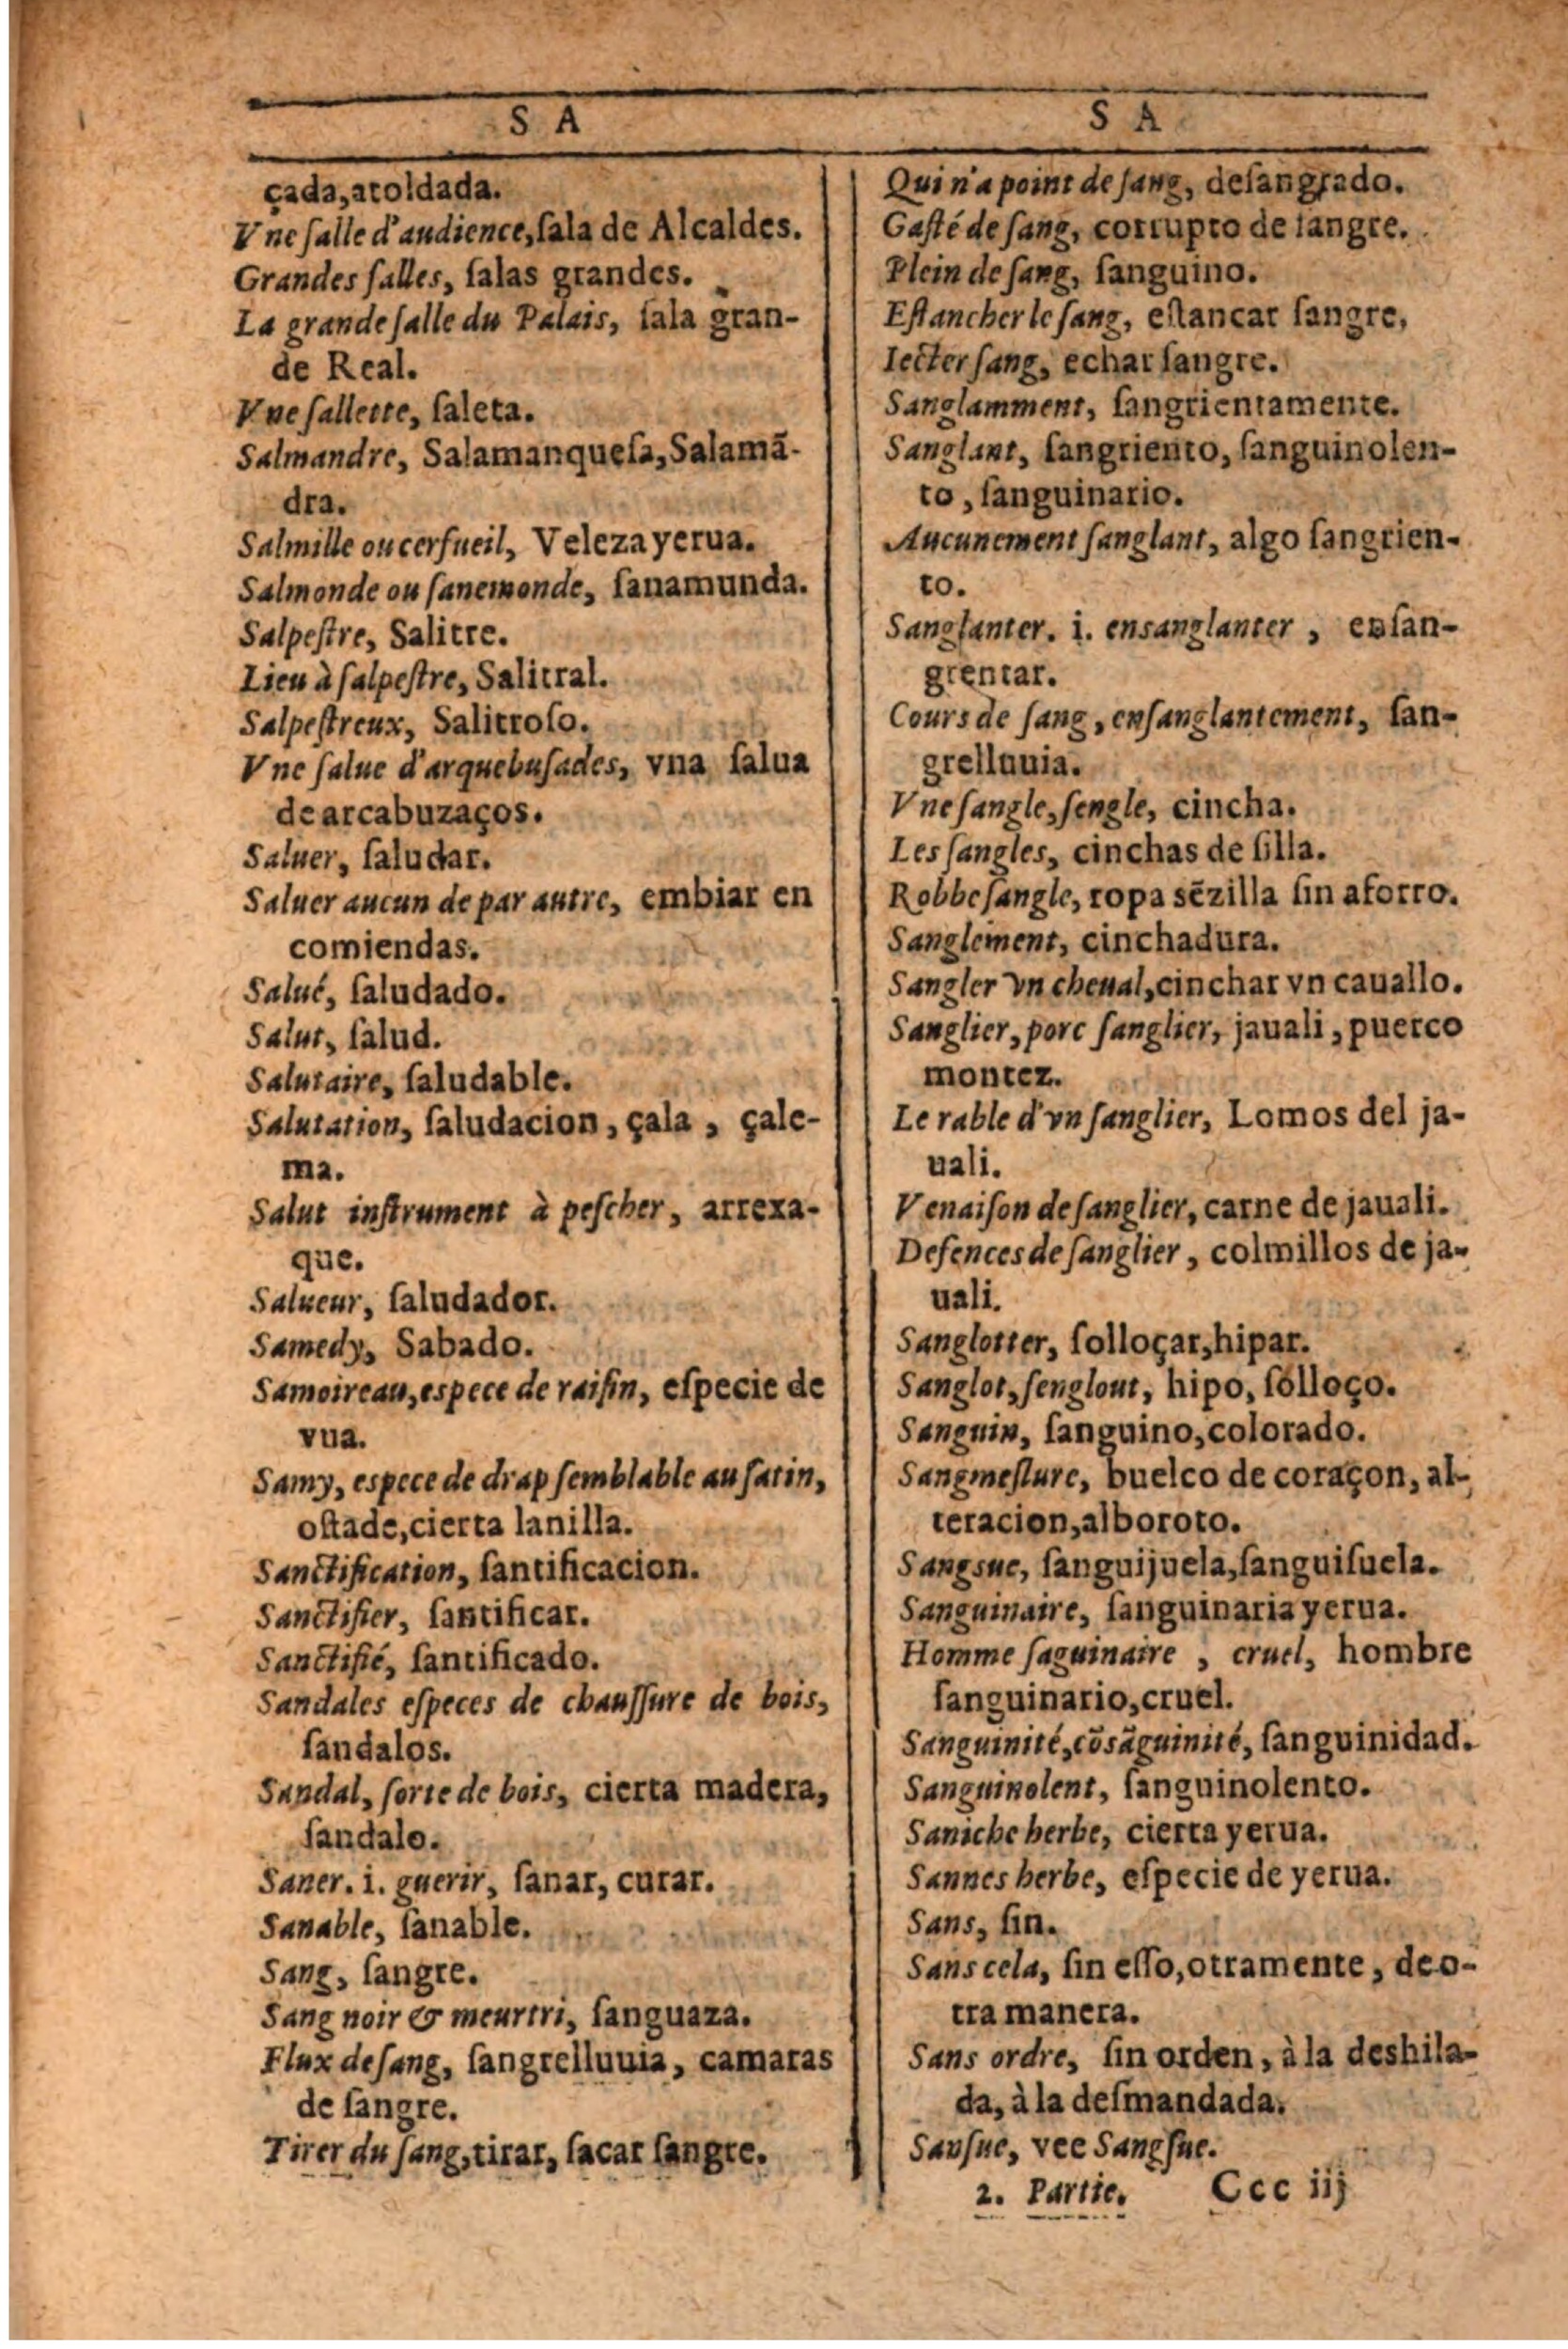 S A
çada, atoldada.
Vne ſalle d'audience, ſala de Alcaldes.
Grandes ſalles, ſalas grandes.
La grande ſalle du Palais, ſala gran-
de Real.
Vne ſallette, ſaleta.
Salmandre, Salamanqueſa, Salamã-
dra.
Salmille ou cerfueil, Veleza yerua.
Salmonde ou ſanemonde, ſanamunda.
Salpeſtre, Salitre.
Lieu à ſalpeſtre, Salitral.
Salpeſtreux, Salitroſo.
Vne ſalue d'arquebuſades, vna ſalua
de arcabuzaços.
Saluer, ſaludar.
Saluer aucun de par autre, embiar en
comiendas.
Salué, ſaludado.
Salut, ſalud.
Salutaire, ſaludable.
Salutation, ſaludacion, çala, çale-
ma.
Salut inſtrument à peſcher, arrexa-
que.
Salueur, ſaludador.
Samedy, Sabado.
Samoireau, espece de raiſin, eſpecie de
vua.
Samy, espece de drap ſemblable au ſatin,
oſtade, cierta lanilla.
Sanctification, ſantificacion.
Sanctifier, ſantificar.
Sanctifié, ſantificado.
Sandales eſpeces de chauſſure de bois,
ſandalos.
Sandal, ſorte de bois, cierta madera,
ſandalo.
Saner. i. guerir, ſanar, curar.
Sanable, ſanable.
Sang, ſangre.
Sang noir & meurtri, ſanguaza.
Flux de ſang, ſangrelluuia, camaras
de ſangre.
Tirer du ſang, tirar, ſacar ſangre.
S A
Qui n'a point de ſang, deſangrado.
Gaſté de ſang, corrupto de ſangre.
Plein de ſang, ſanguino.
Eſtancher le ſang, eſtancar ſangre,
Iecter ſang, echar ſangre.
Sanglamment, ſangrientamente.
Sanglant, ſangriento, ſanguinolen-
to, ſanguinario.
Aucunement ſanglant, algo ſangrien-
to.
Sanglanter. i. ensanglanter, enſan-
grentar.
Cours de ſang, enſanglantement, ſan-
grelluuia.
Vne ſangle, ſengle, cincha.
Les ſangles, cinchas de ſilla.
Robbe ſangle, ropa sẽzilla ſin aforro.
Sanglement, cinchadura.
Sangler vn cheual, cinchar vn cauallo.
Sanglier, porc ſanglier, jauali, puerco
montez.
Le rable d'vn ſanglier, Lomos del ja-
uali.
Venaiſon de ſanglier, carne de jauali.
Defences de ſanglier, colmillos de ja-
uali.
Sanglotter, ſolloçar, hipar.
Sanglot, ſenglout, hipo, ſolloço.
Sanguin, ſanguino, colorado.
Sangmeſlure, buelco de coraçon, al-
teracion, alboroto.
Sangsue, ſanguijuela, ſanguiſuela.
Sanguinaire, ſanguinaria yerua.
Homme ſaguinaire, cruel, hombre
ſanguinario, cruel.
Sanguinité, cõsãguinité, ſanguinidad.
Sanguinolent, ſanguinolento.
Saniche herbe, cierta yerua.
Sannes herbe, eſpecie de yerua.
Sans, ſin.
Sans cela, ſin eſſo, otramente, de o-
tra manera.
Sans ordre, ſin orden, à la deshila-
da, à la deſmandada.
Sanſue, vee Sangſue.
2. Partie. Ccc iij